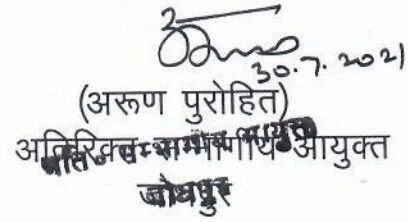 30.7.2021
(अरूण पुरोहित)
अतिरिक्त संभागीय आयुक्त
जोधपुर